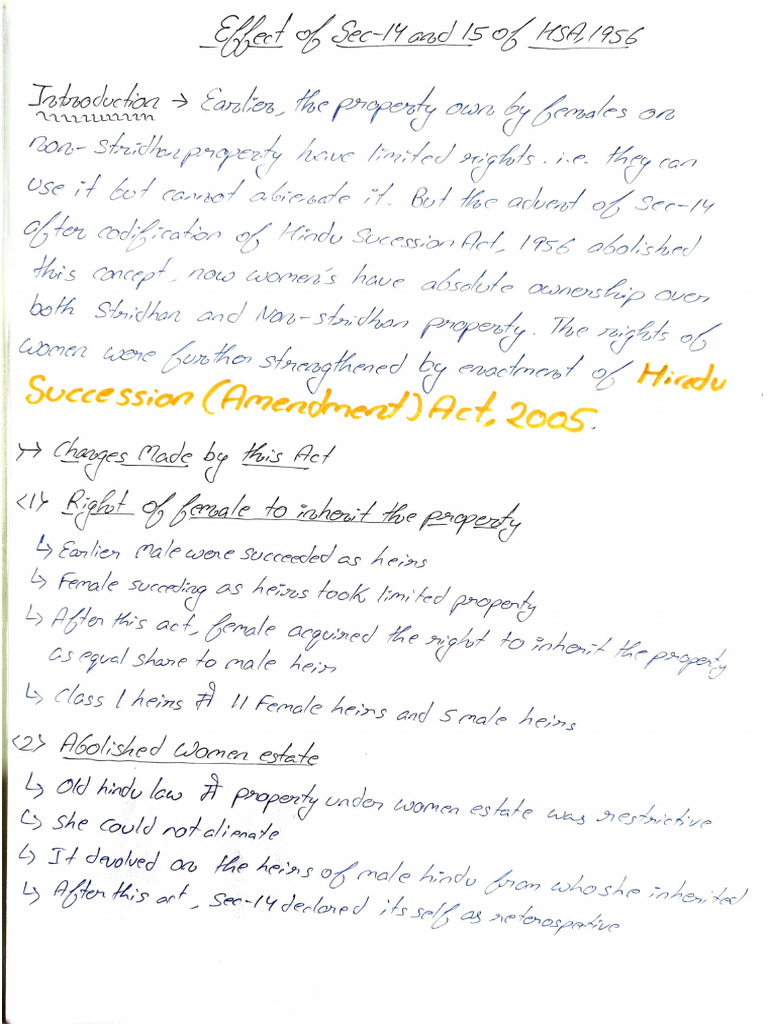 Effect of Sec-14 and 15 of HSA, 1956
Introduction → Earlier, the property own by females on
non-stridhan property have limited rights. i.e. they can
use it but cannot abienate it. But the advent of Sec-14
after codification of Hindu Sucession Act, 1956 abolished
this concept, now women's have absolute ownership over
both Stridhan and Non-stridhan property. The rights of
women were further strengthened by enactment of Hindu
Succession (Amendment) Act, 2005.
↦ Changes Made by this Act
<1> Right of female to inherit the property
↳ Earlier Male were succeeded as heirs
↳ Female succeding as heirs took limited property
↳ After this act, female acquired the right to inherit the property
as equal share to male heir
↳ Class 1 heirs में 11 Female heirs and 5 male heirs
<2> Abolished Women estate
↳ Old hindu law में property under women estate was restrictive
↳ She could not alienate
↳ It devolved on the heirs of male hindu from who she inherited
↳ After this act, Sec-14 declared its self as reterospective